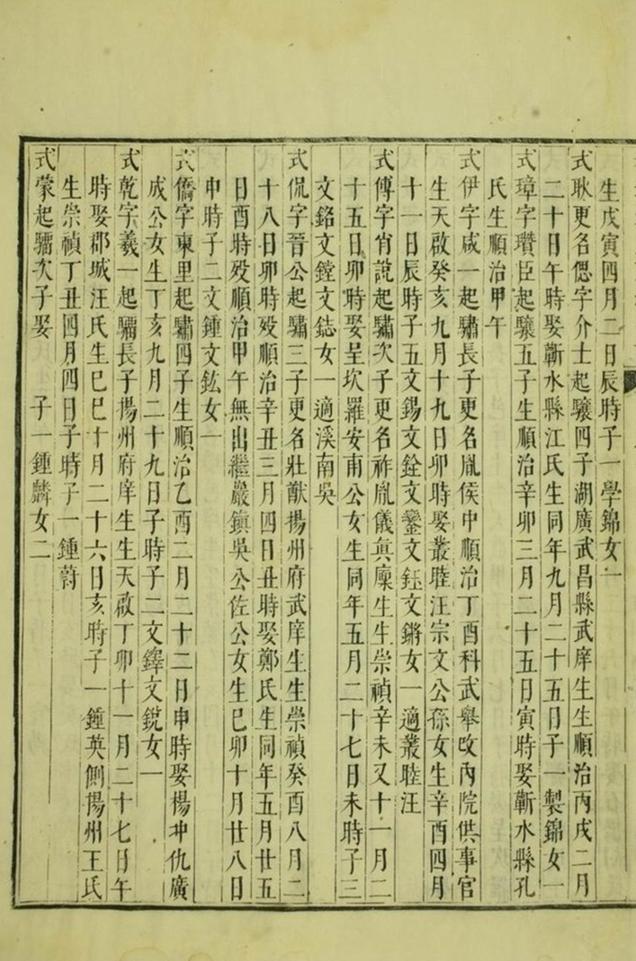 生戊寅四月二日辰時子一學錦女一
式耿更名偲字介士起驤四子湖廣武昌縣武庠生生順治丙戌二月
二十日午時娶蘄水縣江氏生同年九月二十五日子一製錦女一
式璋字瓚臣起驤五子生順治辛卯三月二十五日寅時娶蘄水縣孔
氏生順治甲午
式伊字咸一起驌長子更名胤侯中順治丁酉科武舉改內院供事官
生天啟癸亥九月十九日卯時娶叢睦汪宗文公孫女生辛酉四月
十一日辰時子五文錫文銓文鑾文鈺文鏘女一適叢睦汪
式傅字肖說起驌次子更名祚胤儀真廩生生崇禎辛未又十一月二
十五日卯時娶呈坎羅安甫公女生同年五月二十七日未時子三
文銘文鏜文鋕女一適溪南吳
式侃字晉公起驌三子更名壯猷揚州府武庠生生崇禎癸酉八月二
十八日卯時歿順治辛丑三月四日丑時娶鄭氏生同年五月廿五
日酉時歿順治甲午無出繼巖鎮吳公佐公女生己卯十月廿八日
申時子二文鍾文鈜女一
式僑字東里起驌四子生順治乙酉二月二十二日申時娶楊冲仇廣
成公女生丁亥九月二十九日子時子二文鐸文銳女一
式乾字羲一起驦長子揚州府庠生生天啟丁卯十一月二十七日午
時娶郡城汪氏生己巳十月二十六日亥時子一鍾英側揚州王氏
生崇禎丁丑四月四日子時子一鍾蔚
式蒙起驦次子娶 子一鍾麟女二